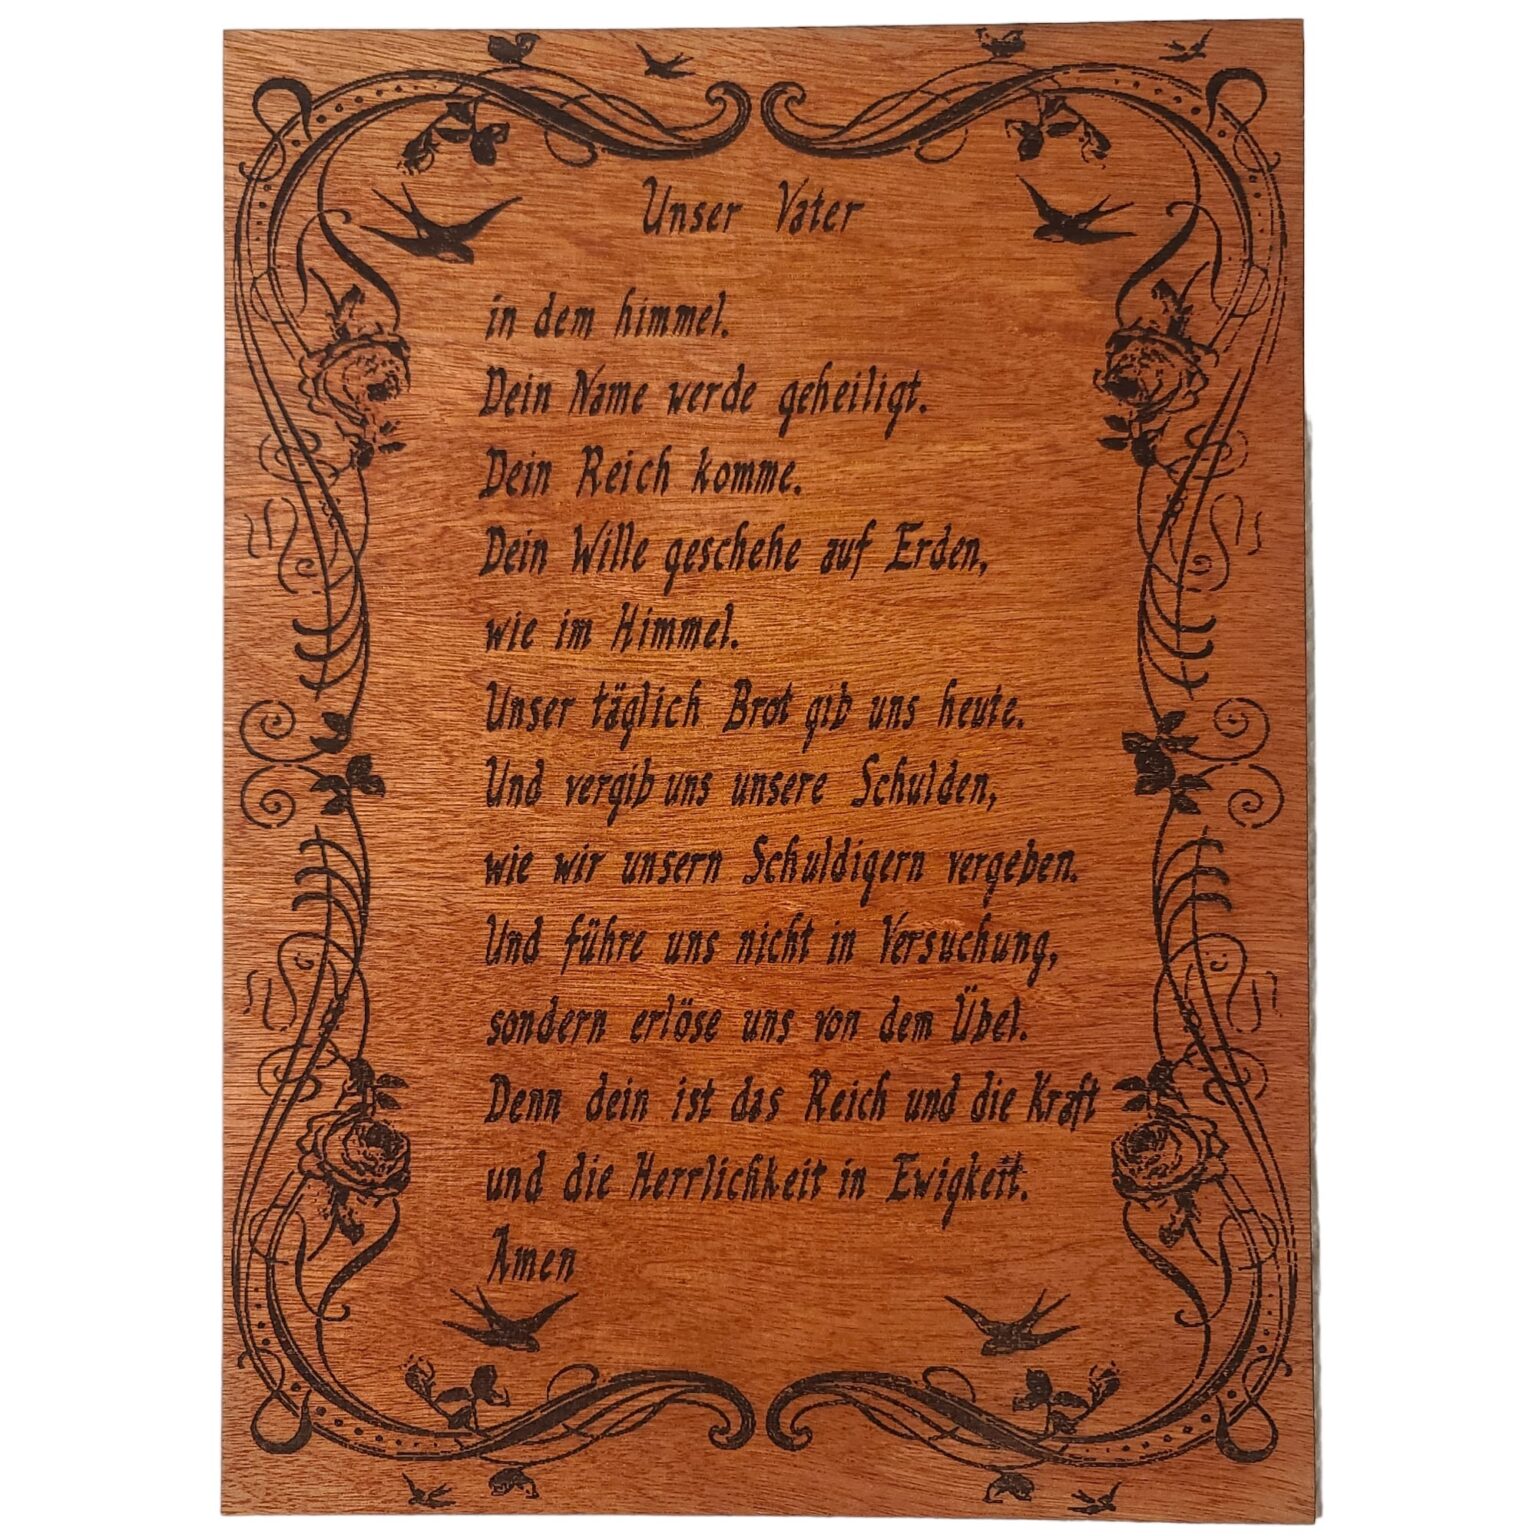 Unser Vater
in dem himmel.
Dein Name werde geheiligt.
Dein Reich komme.
Dein Wille geschehe auf Erden,
wie im Himmel.
Unser täglich Brot gib uns heute.
Und vergib uns unsere Schulden,
wie wir unsern Schuldigern vergeben.
Und führe uns nicht in Versuchung,
sondern erlöse uns von dem Übel.
Denn dein ist das Reich und die Kraft
und die Herrlichkeit in Ewigkeit.
Amen